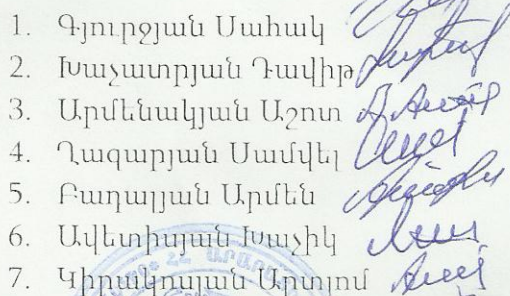 1. Գյուրջյան Սահակ
2. Խաչատրյան Դավիթ
3. Արմենակյան Աշոտ
4. Ղազարյան Սամվել
5. Բադալյան Արմեն
6. Ավետիսյան Խաչիկ
7. Կիրակոսյան Արտյոմ